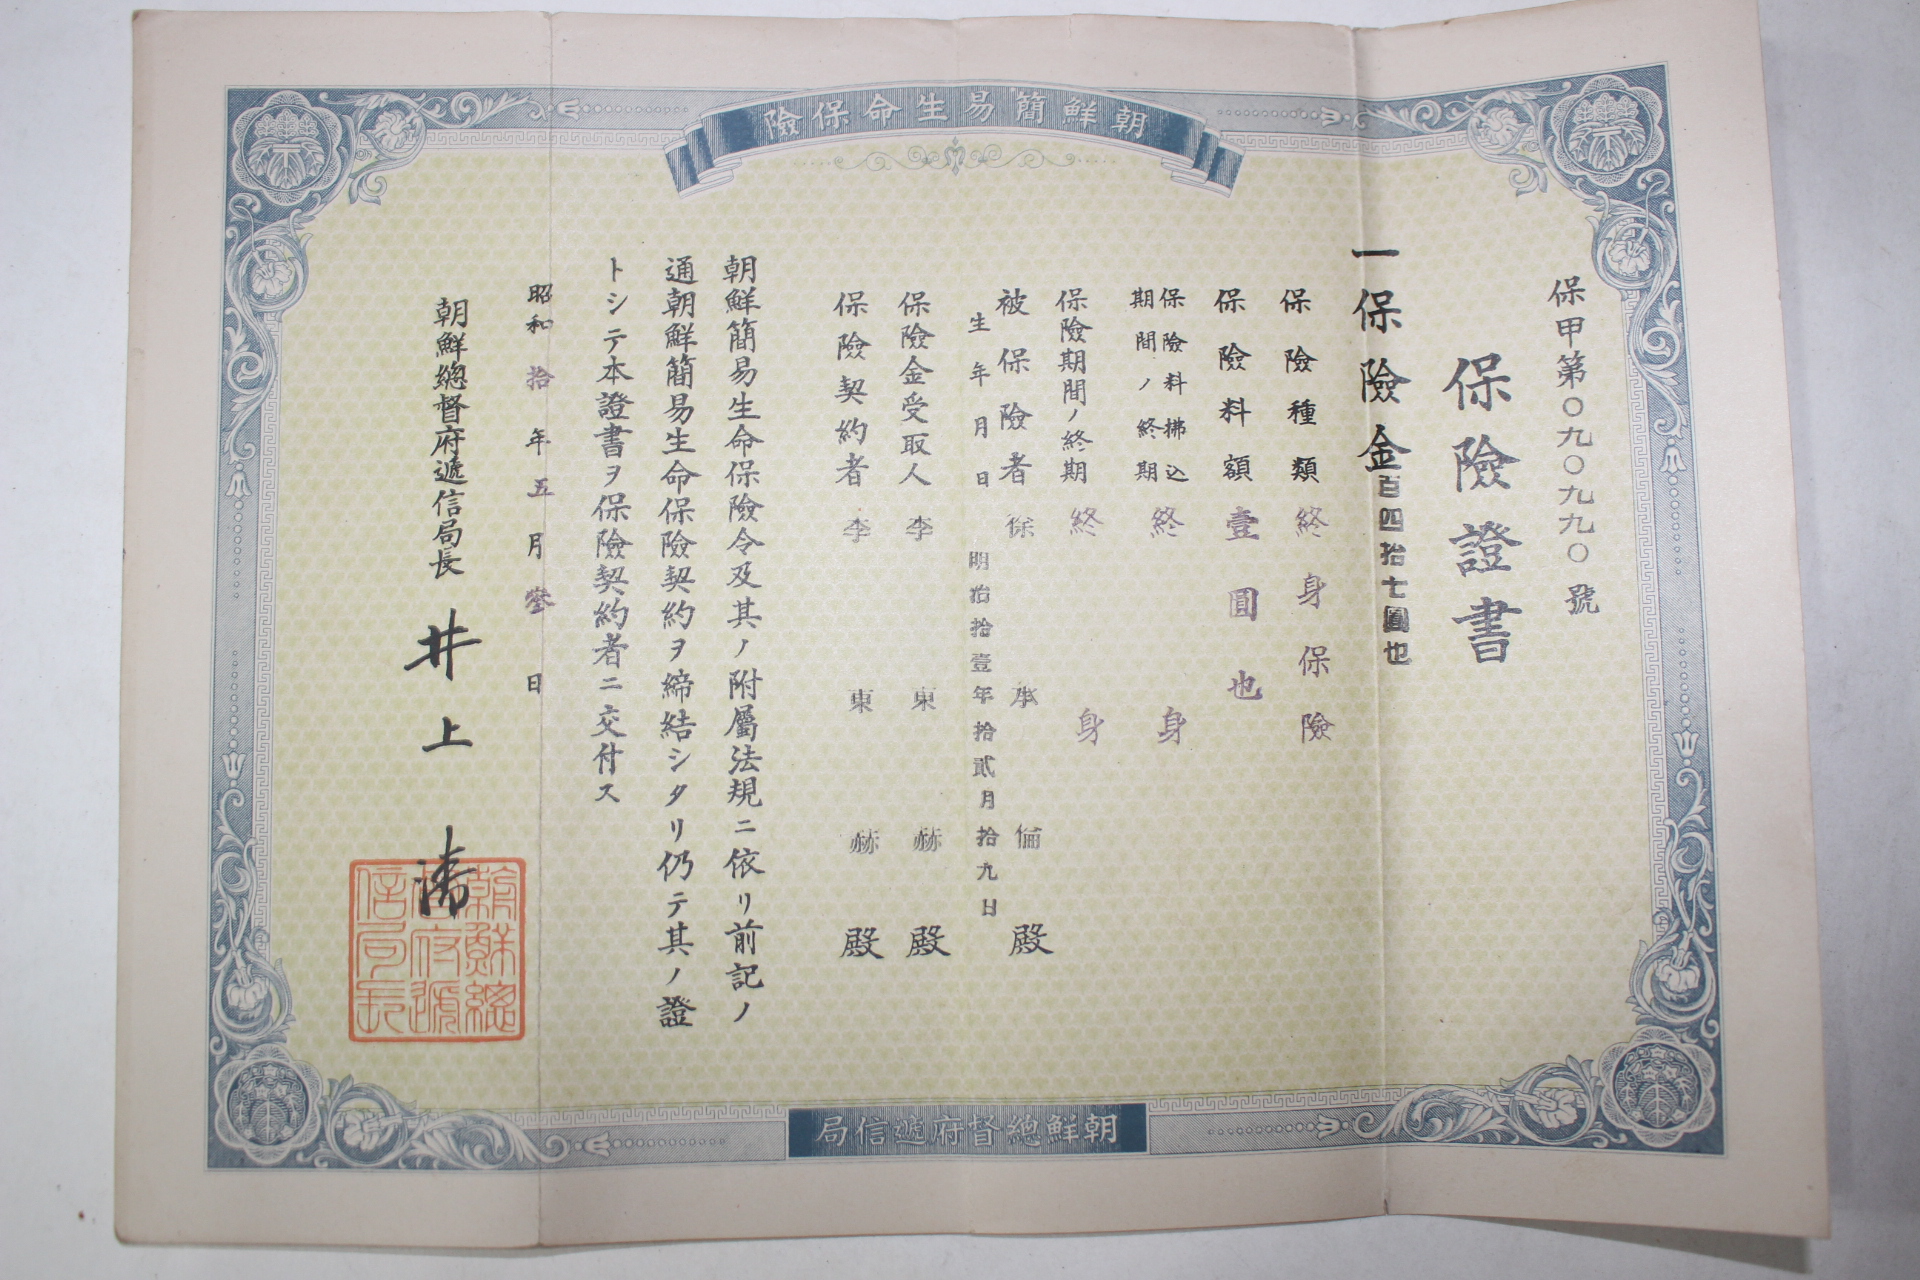 朝鮮簡易生命保險
保甲第〇九〇九九〇號
保險證書
一保險金百四拾七圓也
保險種類 終身保險
保險料額 壹圓也
保險料拂込
期間ノ終期 終身
保險期間ノ終期 終身
被保險者 徐承倫殿
生年月日 明治拾壹年拾貳月拾九日
保險金受取人 李東赫殿
保險契約者 李東赫殿
朝鮮簡易生命保險令及其ノ附屬法規ニ依リ前記ノ
通朝鮮簡易生命保險契約ヲ締結シタリ仍テ其ノ證
トシテ本證書ヲ保險契約者ニ交付ス
昭和拾年五月參日
朝鮮總督府遞信局長 井上清
朝鮮總督府遞信局長
朝鮮總督府遞信局